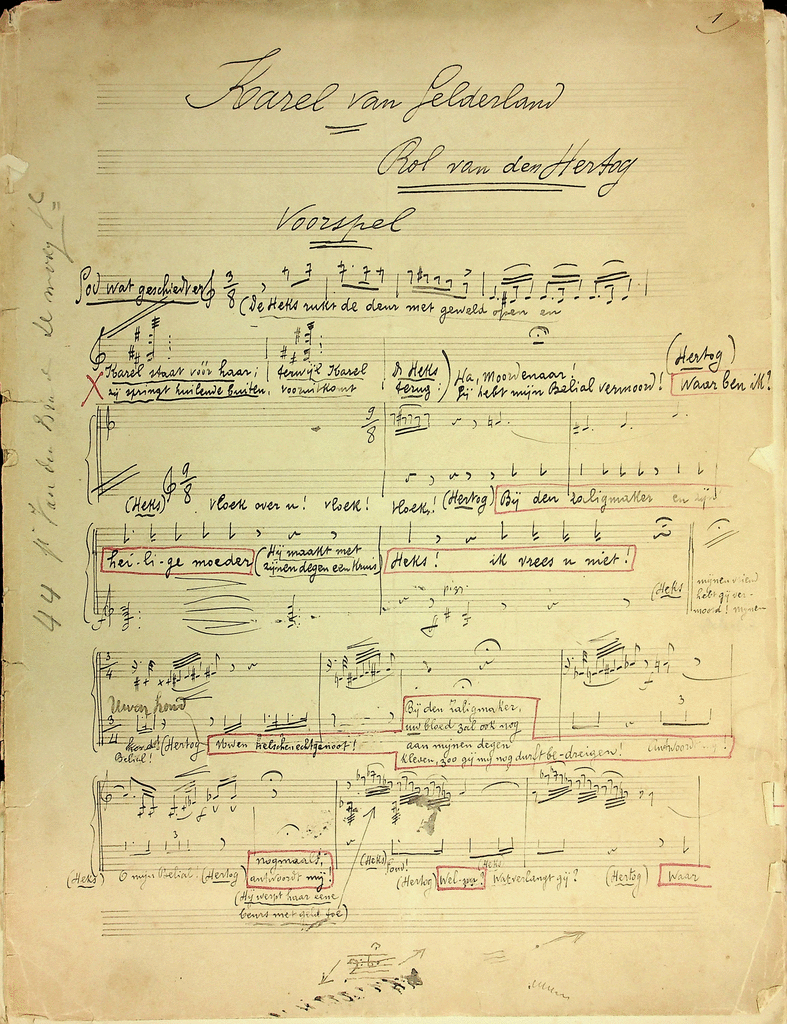 1
Karel van Gelderland
Rol van den Hertog
Voorspel
God wat geschiedt er 3/8
(De Heks rukt de deur met geweld open en
Karel staat vóór haar; terwijl Karel de Heks
zij springt huilende buiten, vooruitkomt terug:)
Ha, Moordenaar!
Gij hebt mijn Belial vermoord!
(Hertog)
Waar ben ik?
9/8
9/8
(Heks) vloek over u! vloek! vloek! (Hertog) Bij den zaligmaker en zijn
hei-li-ge moeder (Hij maakt met zijnen degen een Kruis) Heks! ik vrees u niet!
(Heks mijnen vriend
hebt gij ver-
moord! mijnen
3/4
Uwen hond
Belial! (Hertog) Uwen helschen echtgenoot!
Bij den zaligmaker,
uw bloed zal ook nog
aan mijnen degen
kleven, zoo gij mij nog durft be-dreigen! Antwoord
3
3
(Heks) O mijn Belial! (Hertog) nogmaals,
antwoordt mij!
(Hij werpt haar eene
beurs met geld toe)
(Heks) Goud! (Hertog) Wel-nu? (Heks Wat verlangt gij? (Hertog) Waar
44 Jan den